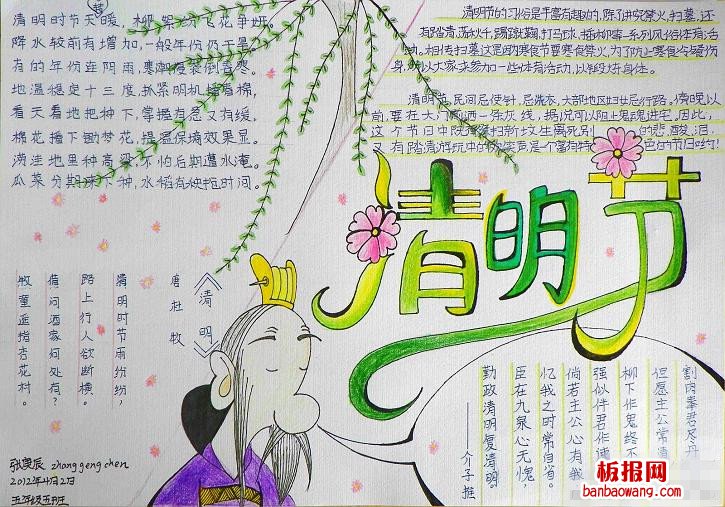 清明时节天暖,柳絮纷飞花争妍。
降水较前有增加,一般年份仍干旱。
有的年份连阴雨,寒潮侵袭倒春寒。
地温稳定十三度,抓紧明机播春棉。
看天看地把种下,掌握有急又有缓。
棉花播下勤梦花,提温保墒效果显。
涝洼地里种高粱,不怕后期遭水淹。
瓜菜分期来下种,水稻育秧抢时间。
清明节的习俗是丰富有趣的,除了讲究禁火,扫墓,还
有踏青,荡秋千,踢蹴鞠,打马球,插柳等一系列风俗体育活
动。相传扫墓这是因为寒食节要寒食禁火,为了防止寒食冷餐伤
身,所以大家来参加一些体育活动,以锻炼身体。
清明节,民间忌使针,忌洗衣,大部地区妇女忌行路。傍晚以
前,要在大门前洒一条灰线,据说可以阻止鬼魂进宅,因此,
这个节日中既有祭扫新坟生离死别的悲酸泪,
又有踏青游玩中的欢笑声,是一个富有特色的节日哟!
清明节
《清明》
唐 杜牧
清明时节雨纷纷,
路上行人欲断
借问酒家何处有?
牧童遥指杏花村。
割肉奉君尽丹
但愿主公常清
柳下作鬼终不
强似伴君作谏
倘若主公心有我
忆我之时常自省。
臣在九泉心无愧,
勤政清明复清明。
——介子推
zhanggengchen
2012年4月2日
五年级五班
板报网
banbaowang.com